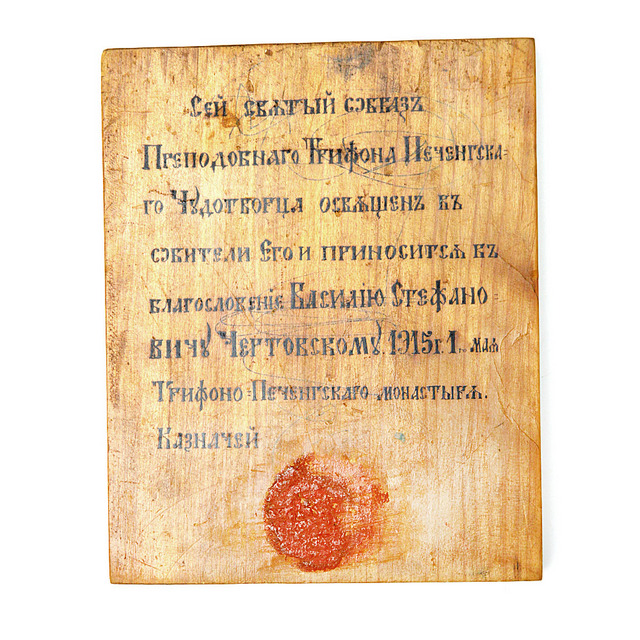 Сей святый образъ
Преподобнаго Трифона Печенгска=
го Чудотворца освященъ въ
обители Его и приносится въ
благословенiе Василiю Стефано=
вичу Чертовскому. 1915 г. 1. мая
Трифоно=Печенгскаго монастыря.
Казначей